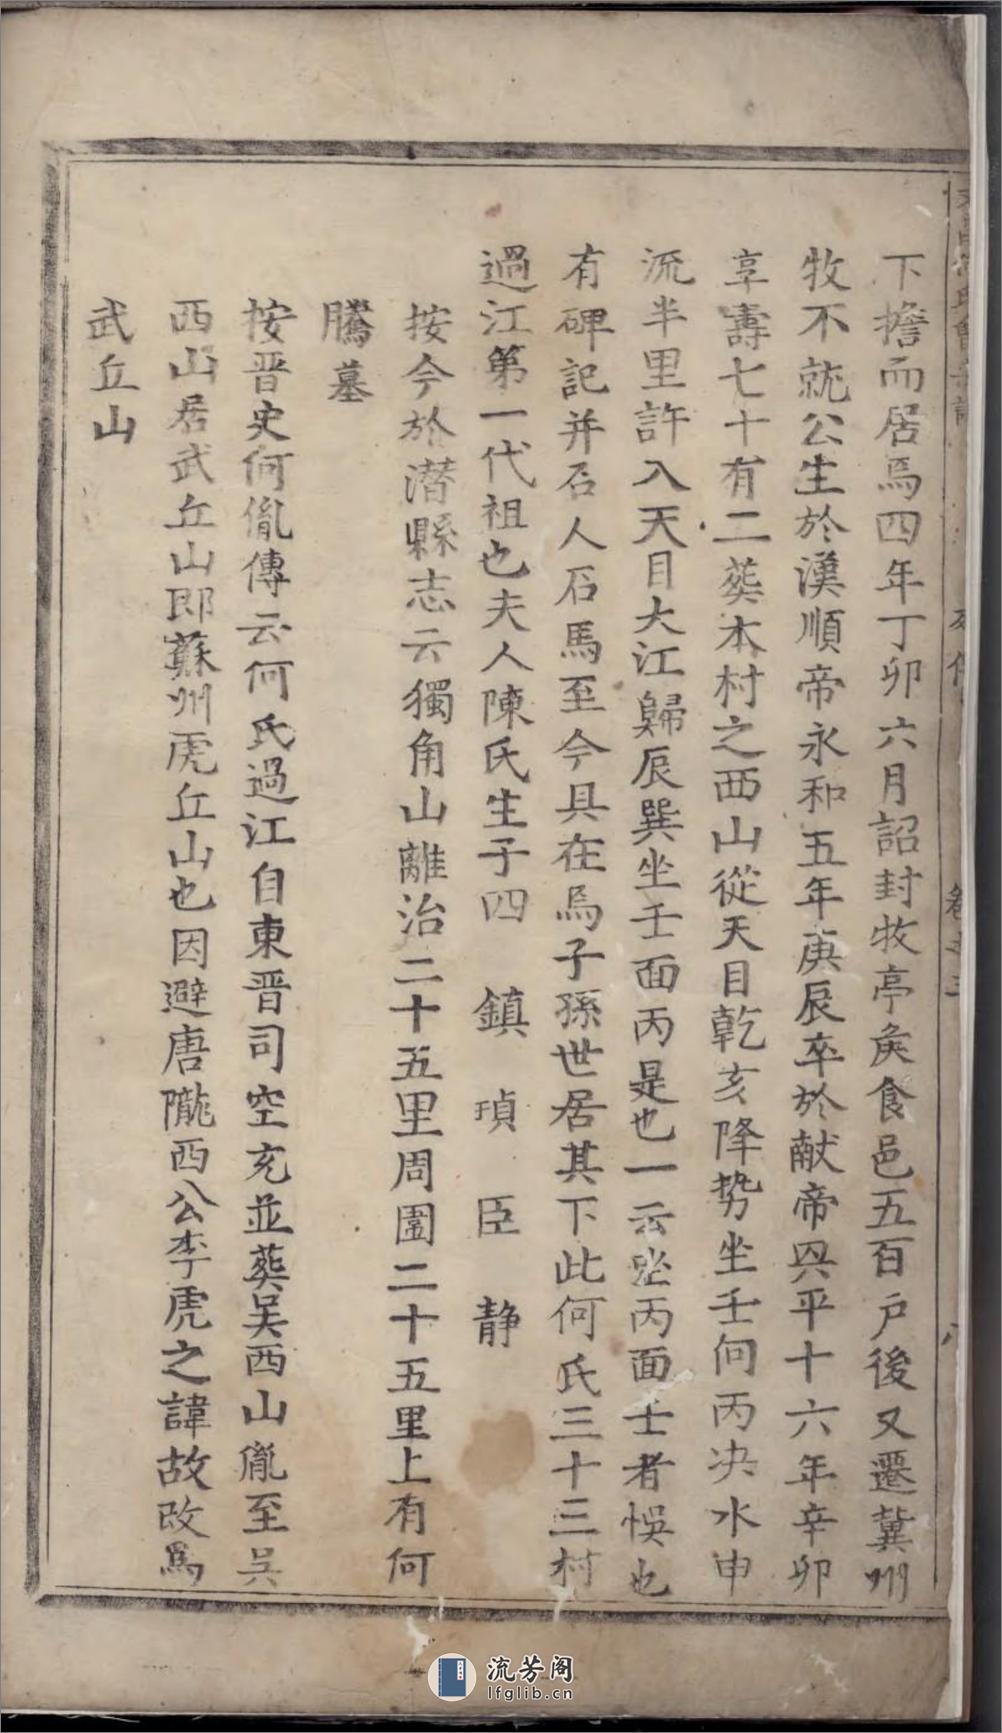 下擔而居焉四年丁卯六月詔封牧亭矦食邑五百户後又遷冀州
牧不就公生於漢順帝永和五年庚辰卒於献帝興平十六年辛卯
享壽七十有二葬本村之西山從天目乾亥降势坐壬向丙决水申
流半里許入天目大江歸辰巽坐壬面丙是也一云坐丙面士者悞也
有碑記并石人石馬至今具在焉子孫世居其下此何氏三十三村
過江第一代祖也夫人陳氏生子四 鎮 瑱 臣 静
按今於潜縣志云獨角山離治二十五里周圍二十五里上有何
騰墓
按晋史何胤傳云何氏過江自東晋司空充並葬吴西山胤至吴
西山居武丘山即蘇州虎丘山也因避唐隴西公李虎之諱故改爲
武丘山
流芳阁
lfglib.cn